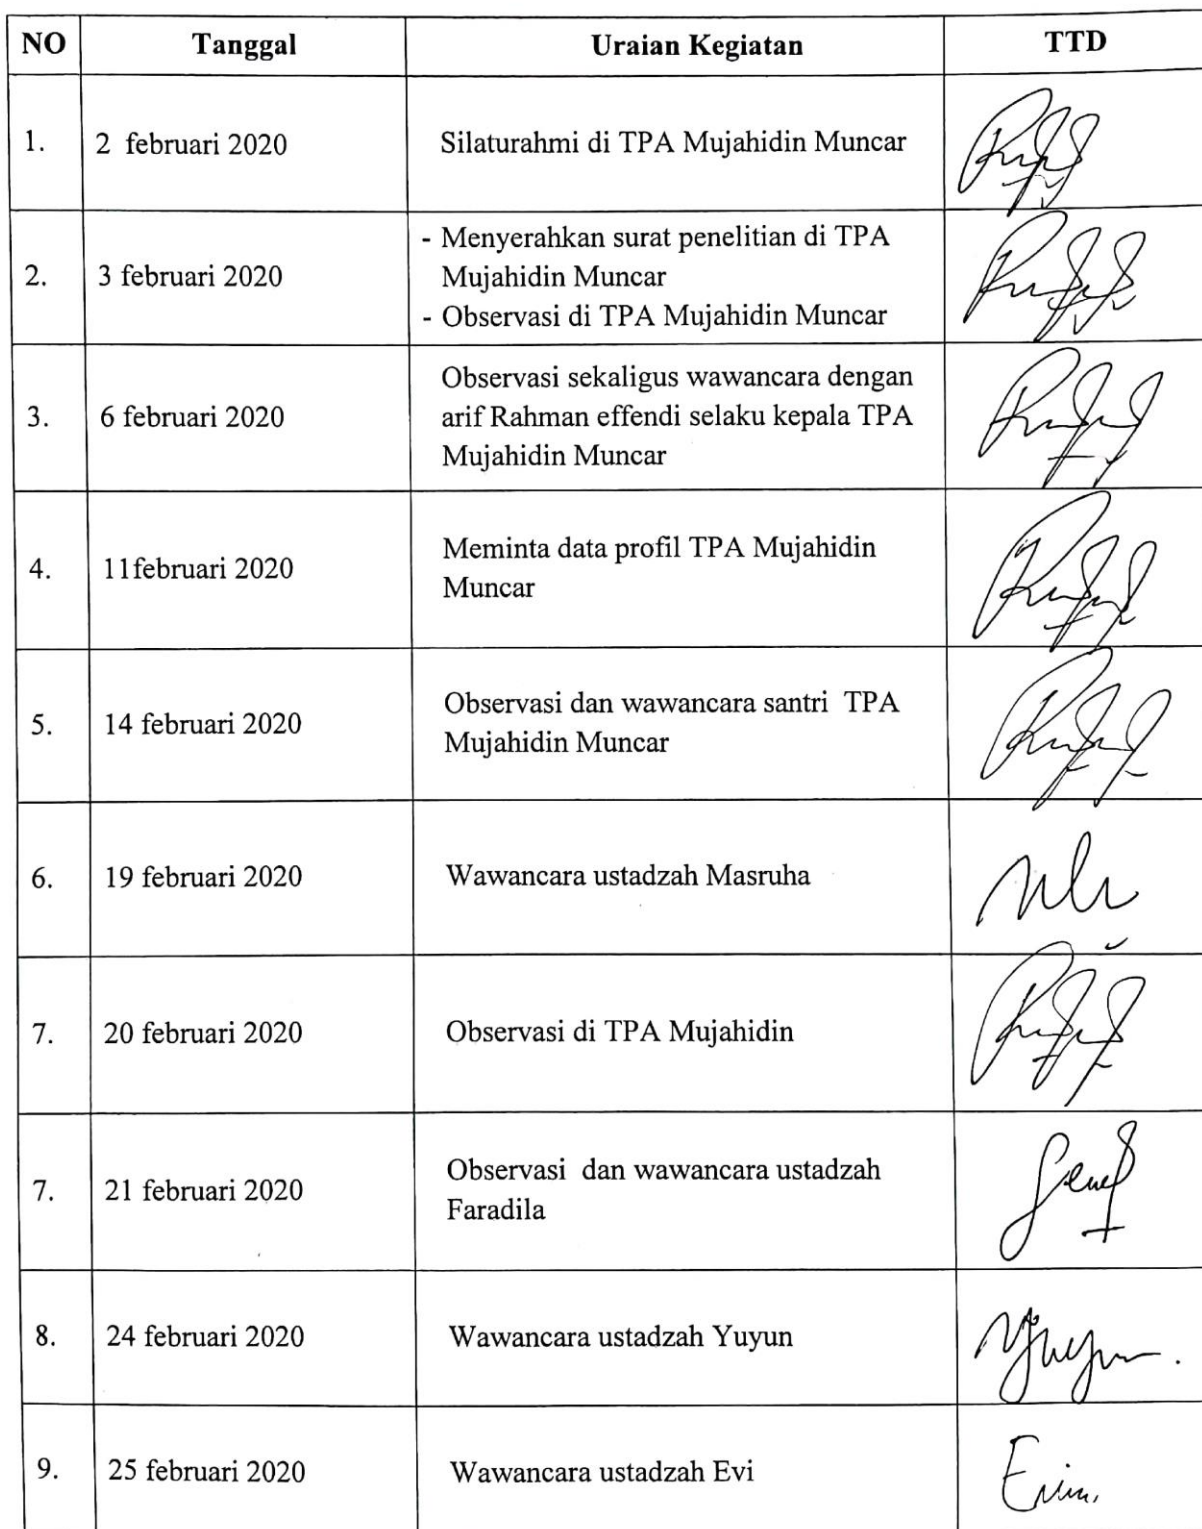 NO Tanggal Uraian Kegiatan TTD
1. 2 februari 2020 Silaturahmi di TPA Mujahidin Muncar
2. 3 februari 2020 - Menyerahkan surat penelitian di TPA
Mujahidin Muncar
- Observasi di TPA Mujahidin Muncar
3. 6 februari 2020 Observasi sekaligus wawancara dengan
arif Rahman effendi selaku kepala TPA
Mujahidin Muncar
4. 11februari 2020 Meminta data profil TPA Mujahidin
Muncar
5. 14 februari 2020 Observasi dan wawancara santri TPA
Mujahidin Muncar
6. 19 februari 2020 Wawancara ustadzah Masruha
7. 20 februari 2020 Observasi di TPA Mujahidin
7. 21 februari 2020 Observasi dan wawancara ustadzah
Faradila
8. 24 februari 2020 Wawancara ustadzah Yuyun
9. 25 februari 2020 Wawancara ustadzah Evi